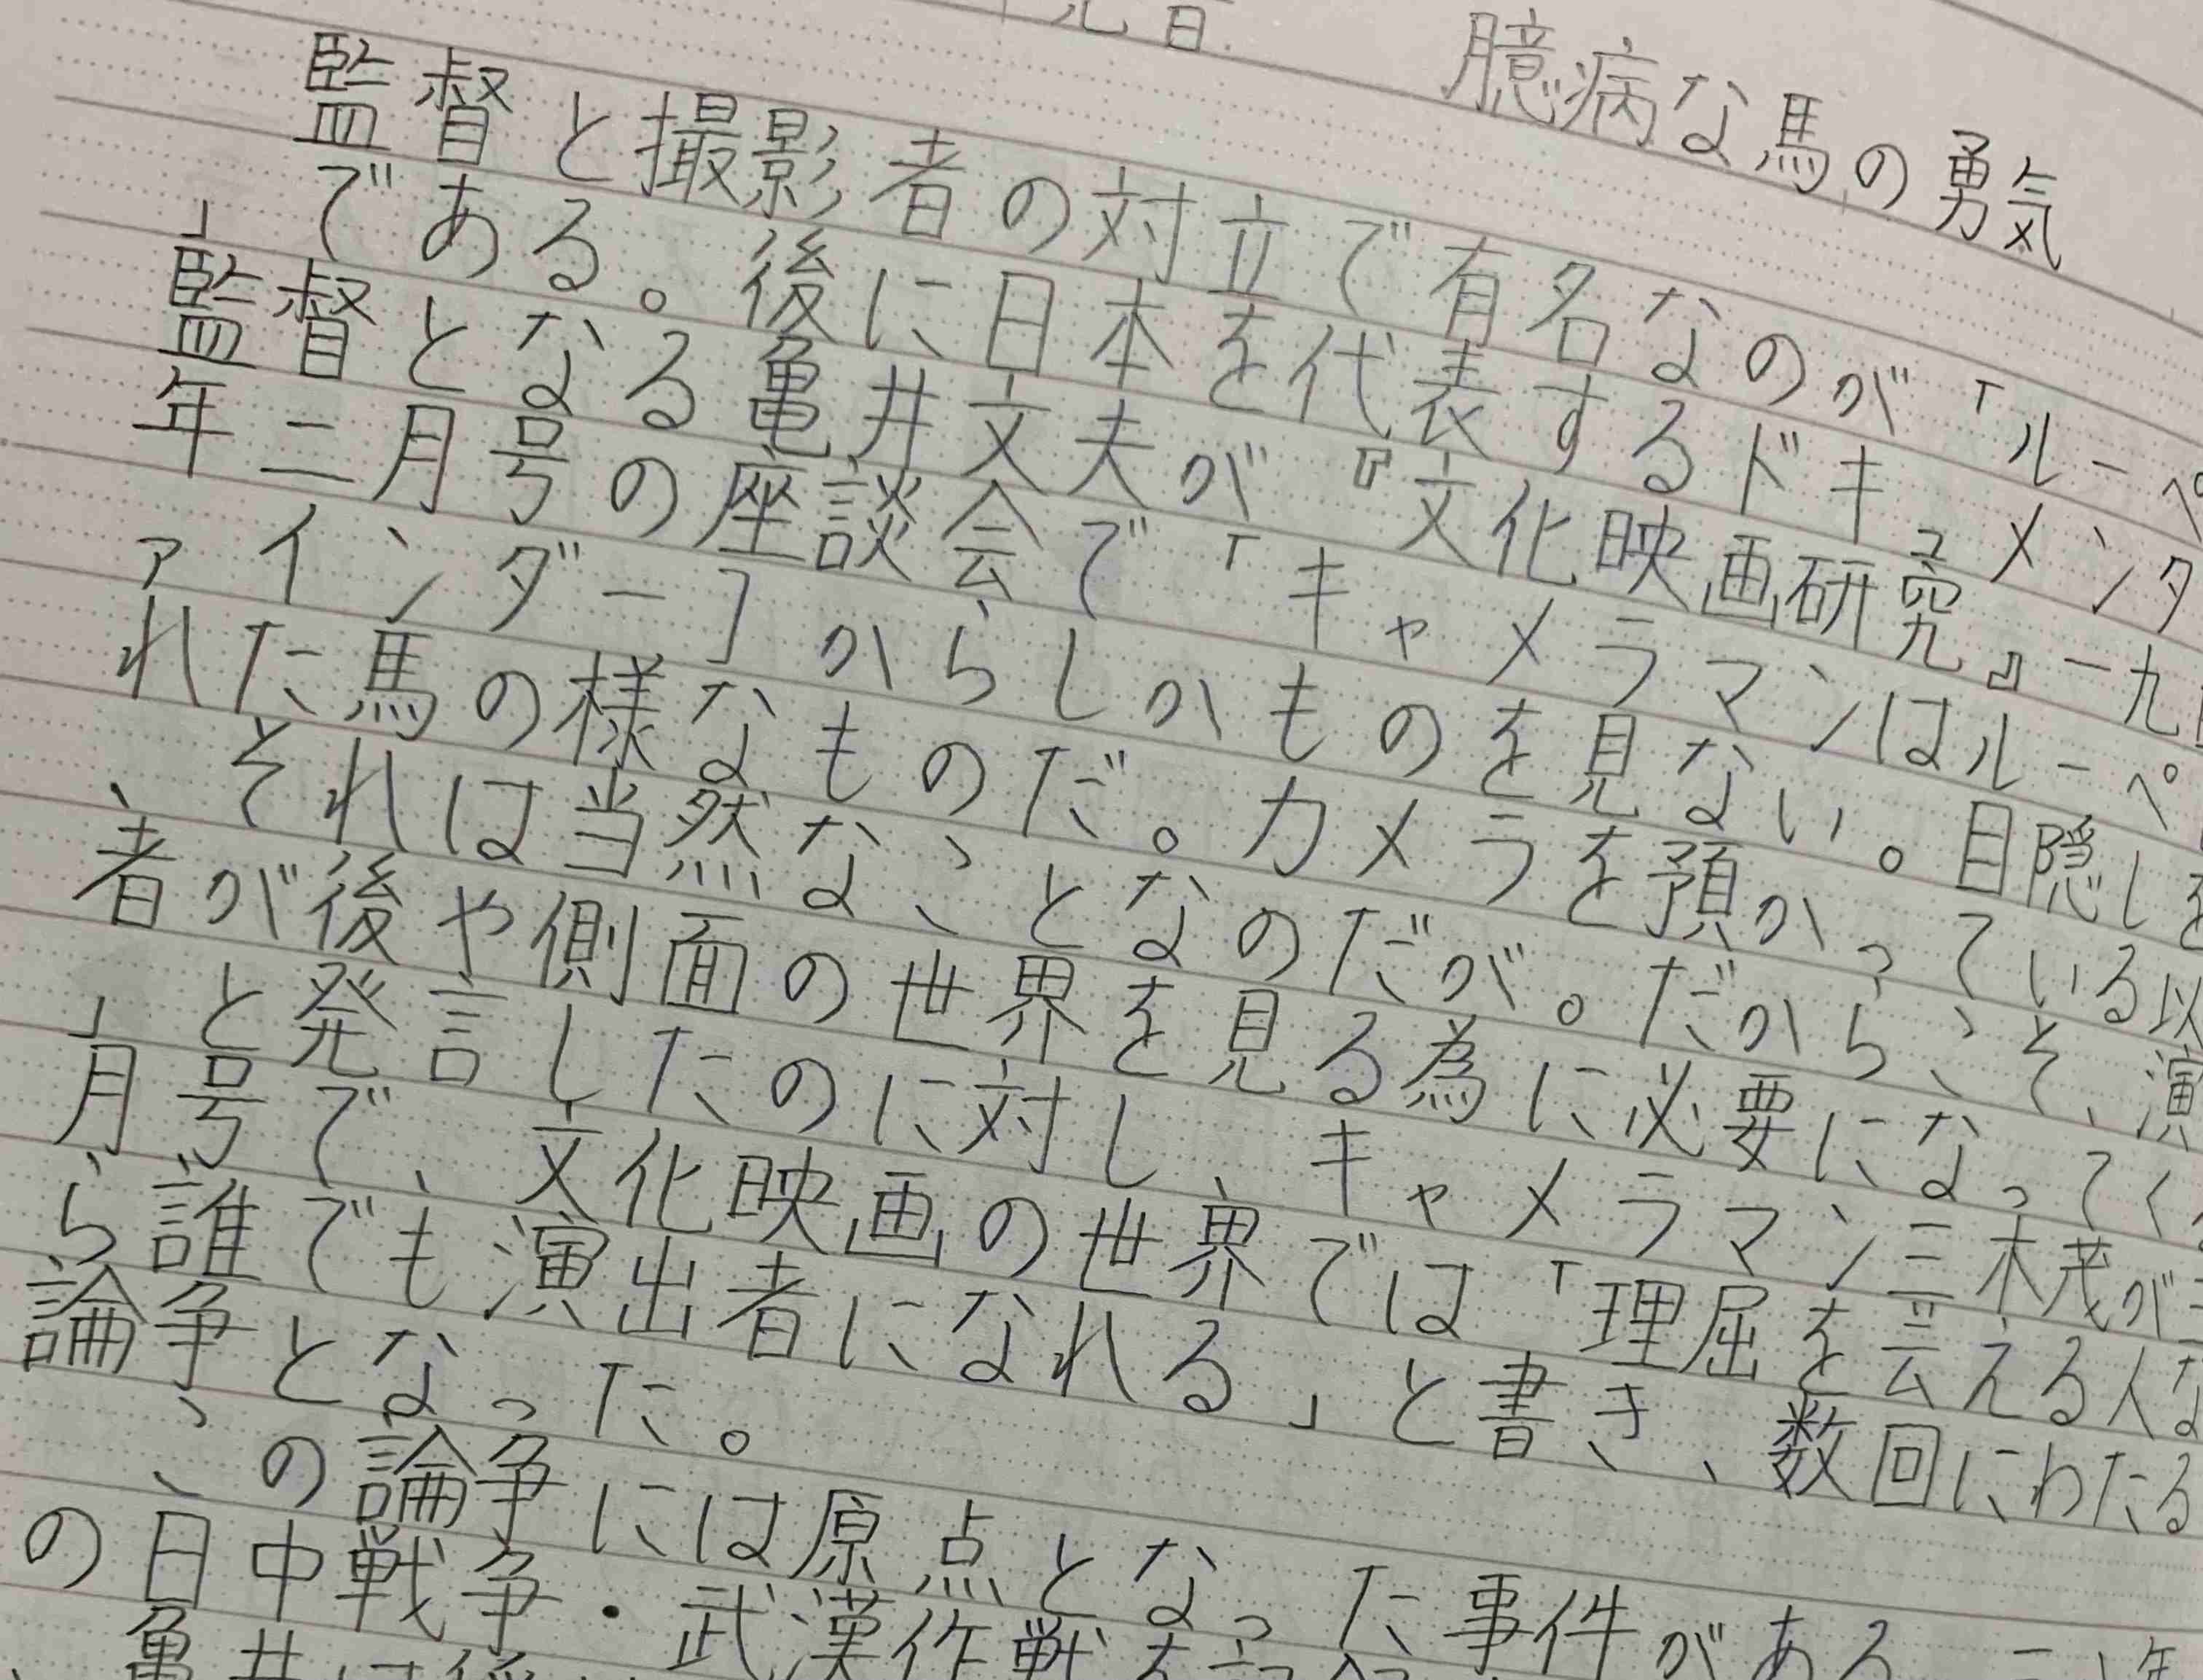 臆病な馬の勇気
監督と撮影者の対立で有名なのが「ルーペ
である。後に日本を代表するドキュメンタ
監督となる亀井文夫が『文化映画研究』一九
年二月号の座談会で「キャメラマンはルーペ
ァインダー］からしかものを見ない。目隠しを
れた馬の様なものだ。カメラを預かっている以
、それは当然なことなのだが。だからこそ、演
者が後や側面の世界を見る為に必要になってく
」と発言したのに対し、キャメラマン三木茂が
月号で、文化映画の世界では「理屈を云える人な
ら誰でも演出者になれる」と書き、数回にわたる
論争となった。
この論争には原点となった事件がある
の日中戦争・武漢作戦を
亀井は